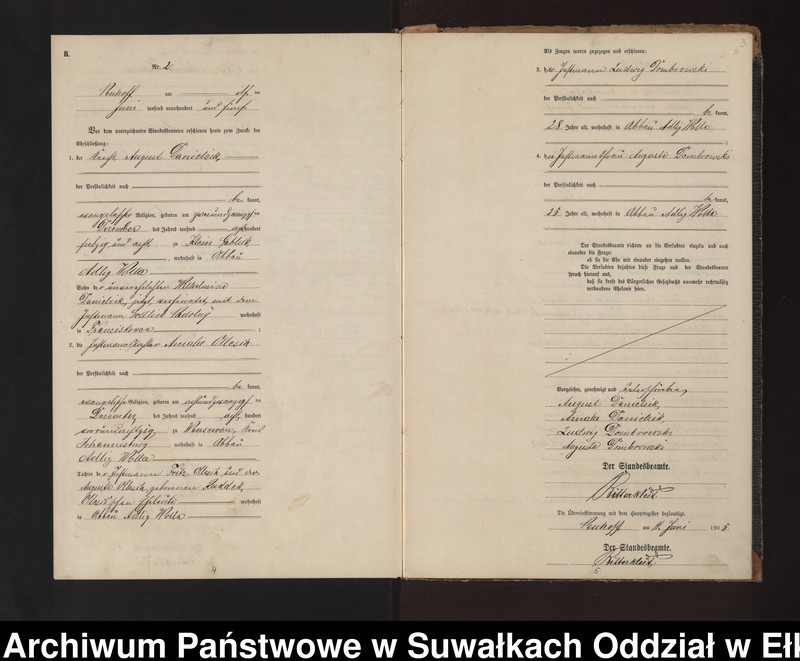 B.
Nr. 2
Neuhoff am elf ten
Juni tausend neunhundert und fünf
Vor dem unterzeichneten Standesbeamten erschienen heute zum Zwecke der
Eheschließung:
1. der Knecht August Danielzik
der Persönlichkeit nach
be kannt,
evangelischer Religion, geboren am zweiundzwanzigsten
Dezember des Jahres tausend acht hundert
siebzig und acht in Klein Gablick
, wohnhaft in Abbau
Adlig Wolla
Sohn der unverehelichten Wilhelmine
Danielzik, jetzt verheiratet mit dem
Instmann Gottlieb wohnhaft
in Franziskowen ;
2. die Instmannstochter Amalie Olesik
der Persönlichkeit nach
be kannt,
evangelischer Religion, geboren am achtundzwanzigsten
Dezember des Jahres tausend acht hundert
vierundachtzig in Kreis
Johannisburg wohnhaft in Abbau
Adlig Wolla
Tochter des Instmann Fritz Olesik und der
Auguste Olesik geborenen Ruddek,
Olesik'schen Eheleute wohnhaft
in Abbau Adlig Wolla
4
3
Als Zeugen waren zugezogen und erschienen:
3. der Instmann Ludwig Dombrowski
der Persönlichkeit nach
be kannt,
28 Jahre alt, wohnhaft in Abbau Adlig Wolla
;
4. die Instmannsfrau Auguste Dombrowski
der Persönlichkeit nach
be kannt,
25 Jahre alt, wohnhaft in Abbau Adlig Wolla
Der Standesbeamte richtete an die Verlobten einzeln und nach
einander die Frage:
ob sie die Ehe mit einander eingehen wollen.
Die Verlobten bejahten diese Frage und der Standesbeamte
sprach hierauf aus,
daß sie kraft des Bürgerlichen Gesetzbuchs nunmehr rechtmäßig
verbundene Eheleute seien.
Vorgelesen, genehmigt und unterschrieben
August Danielzik,
Amalie Danielzik,
Ludwig Dombrowski
Auguste Dombrowski
Der Standesbeamte.
Ritterkleit
Die Übereinstimmung mit dem Hauptregister beglaubigt.
Neuhoff am 11. Juni 1905.
Der Standesbeamte.
Ritterkleit.
5
Archiwum Państwowe w Suwałkach Oddział w Ełk